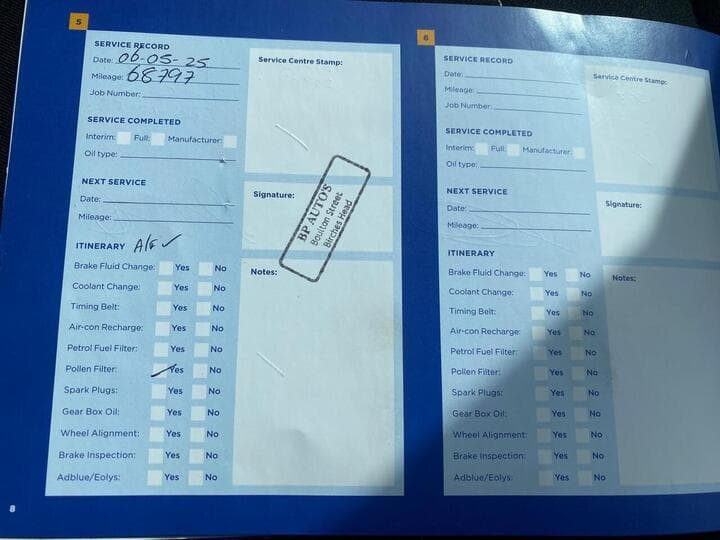 5
SERVICE RECORD
Date: 06-05-25
Mileage: 68797
Job Number:
SERVICE COMPLETED
Interim: Full: Manufacturer:
Oil type:
NEXT SERVICE
Date:
Mileage:
ITINERARY A/F ✓
Brake Fluid Change: Yes No
Coolant Change: Yes No
Timing Belt: Yes No
Air-con Recharge: Yes No
Petrol Fuel Filter: Yes No
Pollen Filter: Yes No
Spark Plugs: Yes No
Gear Box Oil: Yes No
Wheel Alignment: Yes No
Brake Inspection: Yes No
Adblue/Eolys: Yes No
Service Centre Stamp:
Signature:
BP AUTO'S
Boulton Street
Birches Head
Notes:
8
6
SERVICE RECORD
Date:
Mileage:
Job Number:
SERVICE COMPLETED
Interim: Full: Manufacturer:
Oil type:
NEXT SERVICE
Date:
Mileage:
ITINERARY
Brake Fluid Change: Yes No
Coolant Change: Yes No
Timing Belt: Yes No
Air-con Recharge: Yes No
Petrol Fuel Filter: Yes No
Pollen Filter: Yes No
Spark Plugs: Yes No
Gear Box Oil: Yes No
Wheel Alignment: Yes No
Brake Inspection: Yes No
Adblue/Eolys: Yes No
Service Centre Stamp:
Signature:
Notes: